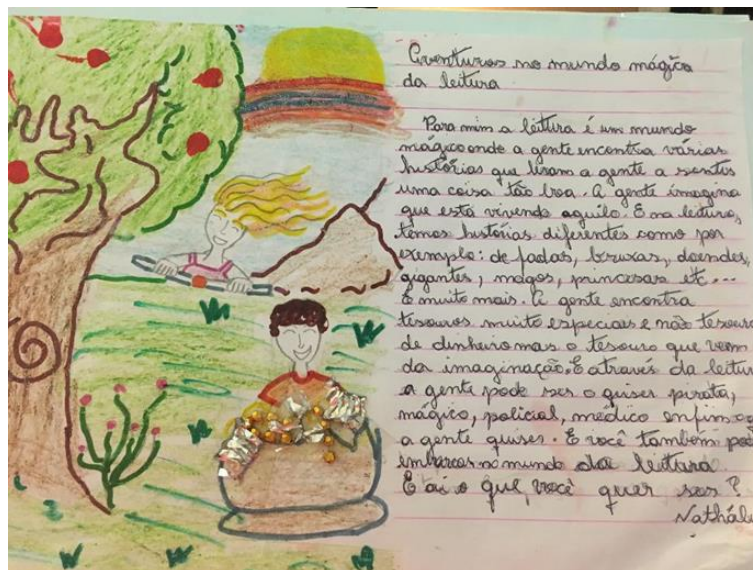 Aventuras no mundo mágico
da leitura
Para mim a leitura é um mundo
mágico onde a gente encontra várias
histórias que livam a gente a sentir
uma coisa tão boa. A gente imagina
que está vivendo aquilo. E na leitura,
temos histórias diferentes como por
exemplo: de fadas, bruxas, duendes,
gigantes, magos, princesas etc...
E muito mais. A gente encontra
tesouros muito especiais e não tesouro
de dinheiro mas o tesouro que vem
da imaginação. E através da leitur
a gente pode ser o quiser pirata,
mágico, policial, médico enfim
a gente quiser. E você também pod
embarcar no mundo da leitura.
E aí o que você quer ser?
Nathál